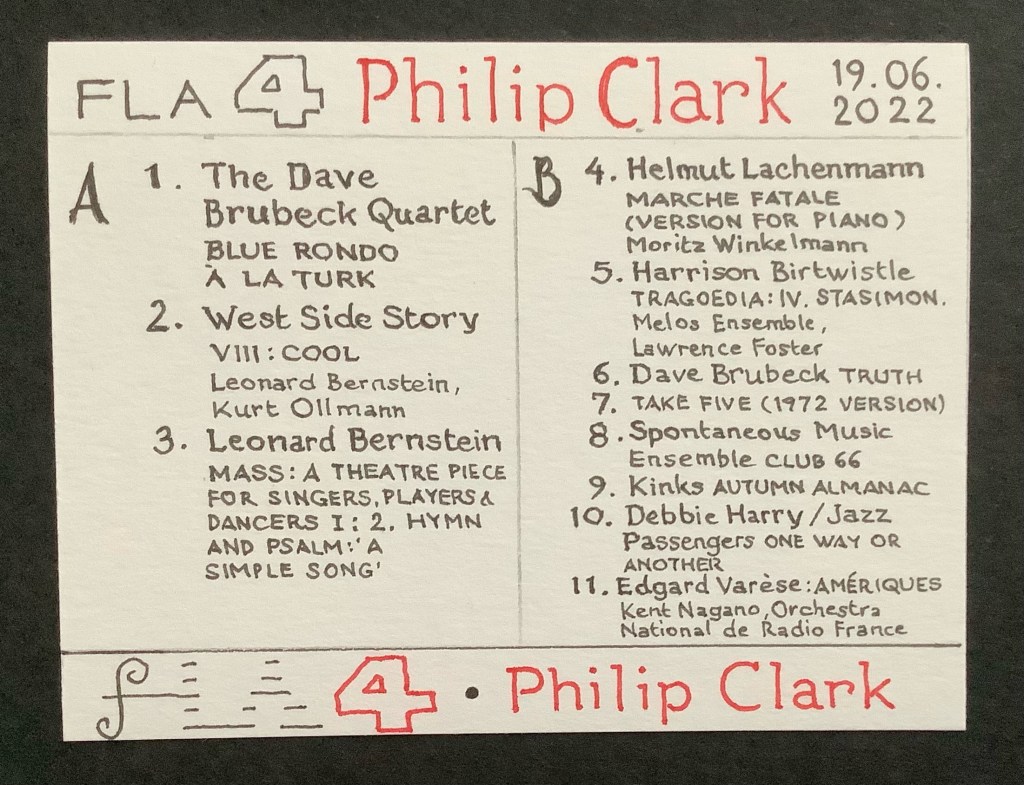 FLA 4 Philip Clark 19.06.
2022
A 1. The Dave
Brubeck Quartet
BLUE RONDO
À LA TURK
2. West Side Story
VIII: COOL
Leonard Bernstein,
Kurt Ollmann
3. Leonard Bernstein
MASS: A THEATRE PIECE
FOR SINGERS, PLAYERS &
DANCERS I: 2. HYMN
AND PSALM: 'A
SIMPLE SONG'
B 4. Helmut Lachenmann
MARCHE FATALE
(VERSION FOR PIANO)
Moritz Winkelmann
5. Harrison Birtwistle
TRAGOEDIA: IV. STASIMON.
Melos Ensemble,
Lawrence Foster
6. Dave Brubeck TRUTH
7. TAKE FIVE (1972 VERSION)
8. Spontaneous Music
Ensemble CLUB 66
9. Kinks AUTUMN ALMANAC
10. Debbie Harry/Jazz
Passengers ONE WAY OR
ANOTHER
11. Edgard Varèse: AMÉRIQUES
Kent Nagano, Orchestra
National de Radio France
fLA 4 • Philip Clark